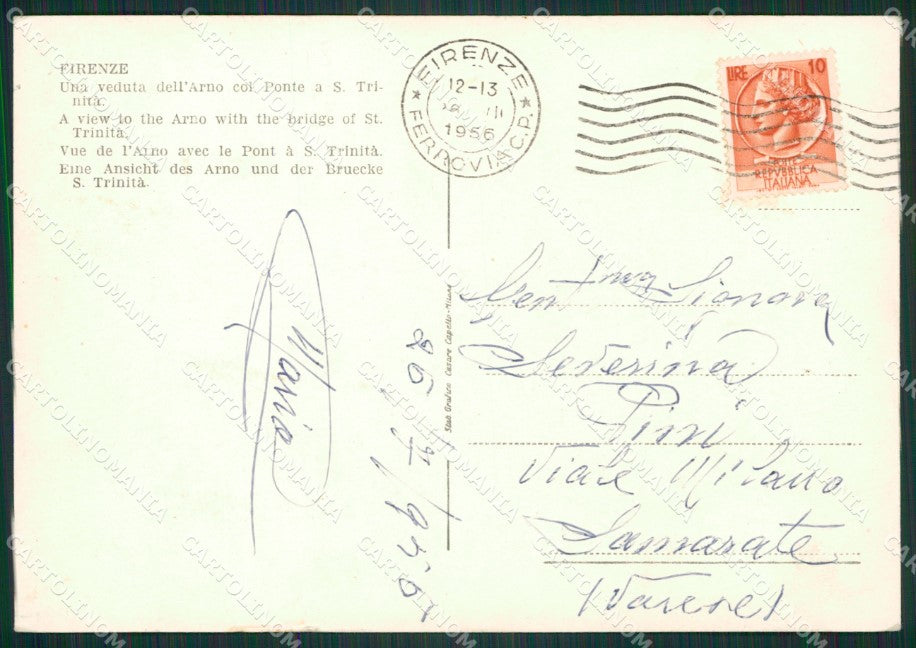 FIRENZE
Una veduta dell'Arno col Ponte a S. Tri-
nità.
A view to the Arno with the bridge of St.
Trinità.
Vue de l'Arno avec le Pont à S. Trinità.
Eine Ansicht des Arno und der Bruecke
S. Trinità.
FIRENZE
12-13
1956
FERROVIA C.P.
LIRE 10
POSTE
REPVBBLICA
ITALIANA
Stab Grafico Cesare Capello - Milano
Mario
Gent Signora
Severina
Pini
Viale Milano
Samarate
(Varese)
CARTOLINOMANIA